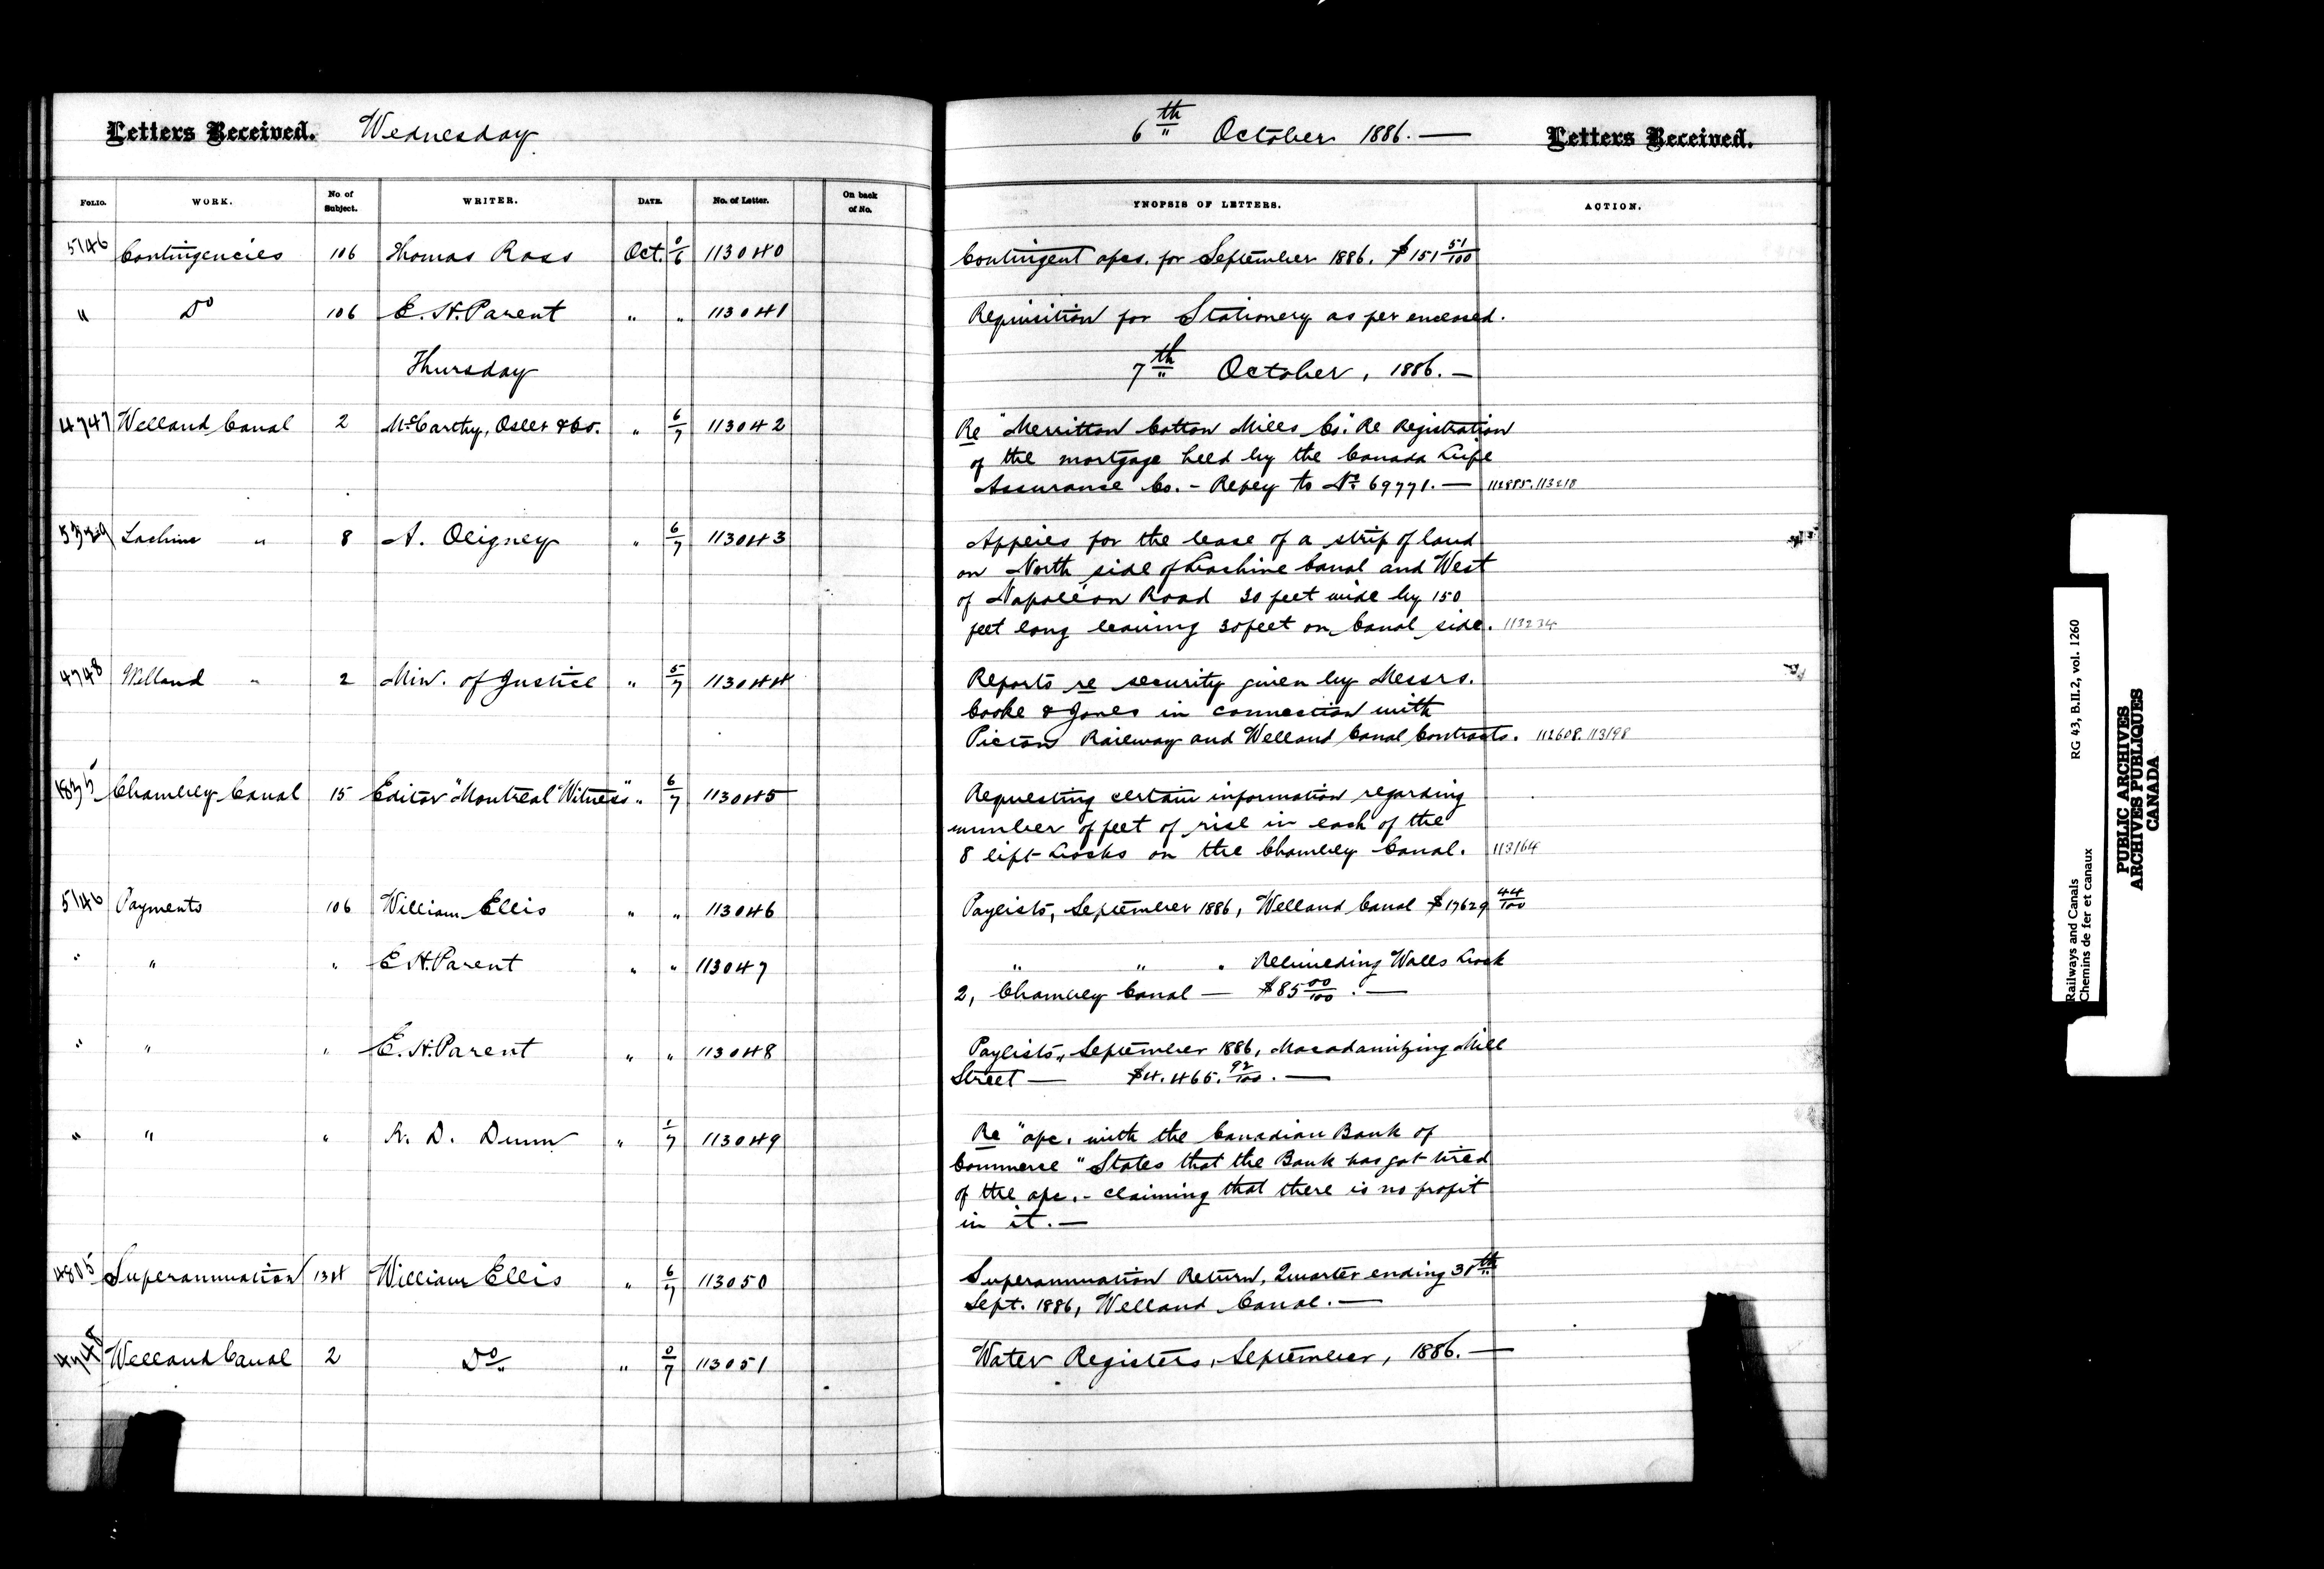 Letters Received. Wednesday 6th October 1886. — Letters Received.
FOLIO. WORK. No of Subject. WRITER. DATE. No. of Letter. On back of No. YNOPSIS OF LETTERS. ACTION.
5146 Contingencies 106 Thomas Ross Oct. 0/6 113040 Contingent apcs. for September 1886. $151 51/100
" Do 106 E. H. Parent " " 113041 Requisition for Stationery as per enclosed.
Thursday 7th October, 1886. —
4747 Welland Canal 2 McCarthy, Osler & Co. " 6/7 113042 Re "Merritton Cotton Mills Co." Re Registration
of the mortgage held by the Canada Life
Assurance Co. - Reply to No 69771. — 112885. 113218
Lachine " 8 A. Oligney " 6/7 113043 Applies for the lease of a strip of land
on North side of Lachine Canal and West
of Napoléon Road 30 feet wide by 150
feet long leaving 30 feet on Canal side. 113234
4748 Welland " 2 Min. of Justice " 5/7 113044 Reports re security given by Messrs.
Cooke & Jones in connection with
Pictou Railway and Welland Canal Contracts. 112608. 113198
1835 Chambly Canal 15 Editor "Montreal Witness" " 6/7 113045 Requesting certain information regarding
number of feet of rise in each of the
8 lift-Locks on the Chambly Canal. 113164
5146 Payments 106 William Ellis " " 113046 Paylists, September 1886, Welland Canal $17629 44/100
" " " E. H. Parent " " 113047 " " " Rebuilding Walls Lock
2, Chambly Canal — $85 00/100. —
" " " E. H. Parent " " 113048 Paylists, September 1886, Macadamizing Mill
Street — $4.465. 92/100. —
" " " R. D. Dunn " 1/7 113049 Re "apc. with the Canadian Bank of
Commerce" States that the Bank has got tired
of the apc. - claiming that there is no profit
in it. —
4805 Superannuation 134 William Ellis " 6/7 113050 Superannuation Return, Quarter ending 30th
Sept. 1886, Welland Canal. —
4748 Welland Canal 2 Do " 0/7 113051 Water Registers, September, 1886. —
Railways and Canals RG 43, B.II.2, vol. 1260
Chemins de fer et canaux
PUBLIC ARCHIVES
ARCHIVES PUBLIQUES
CANADA